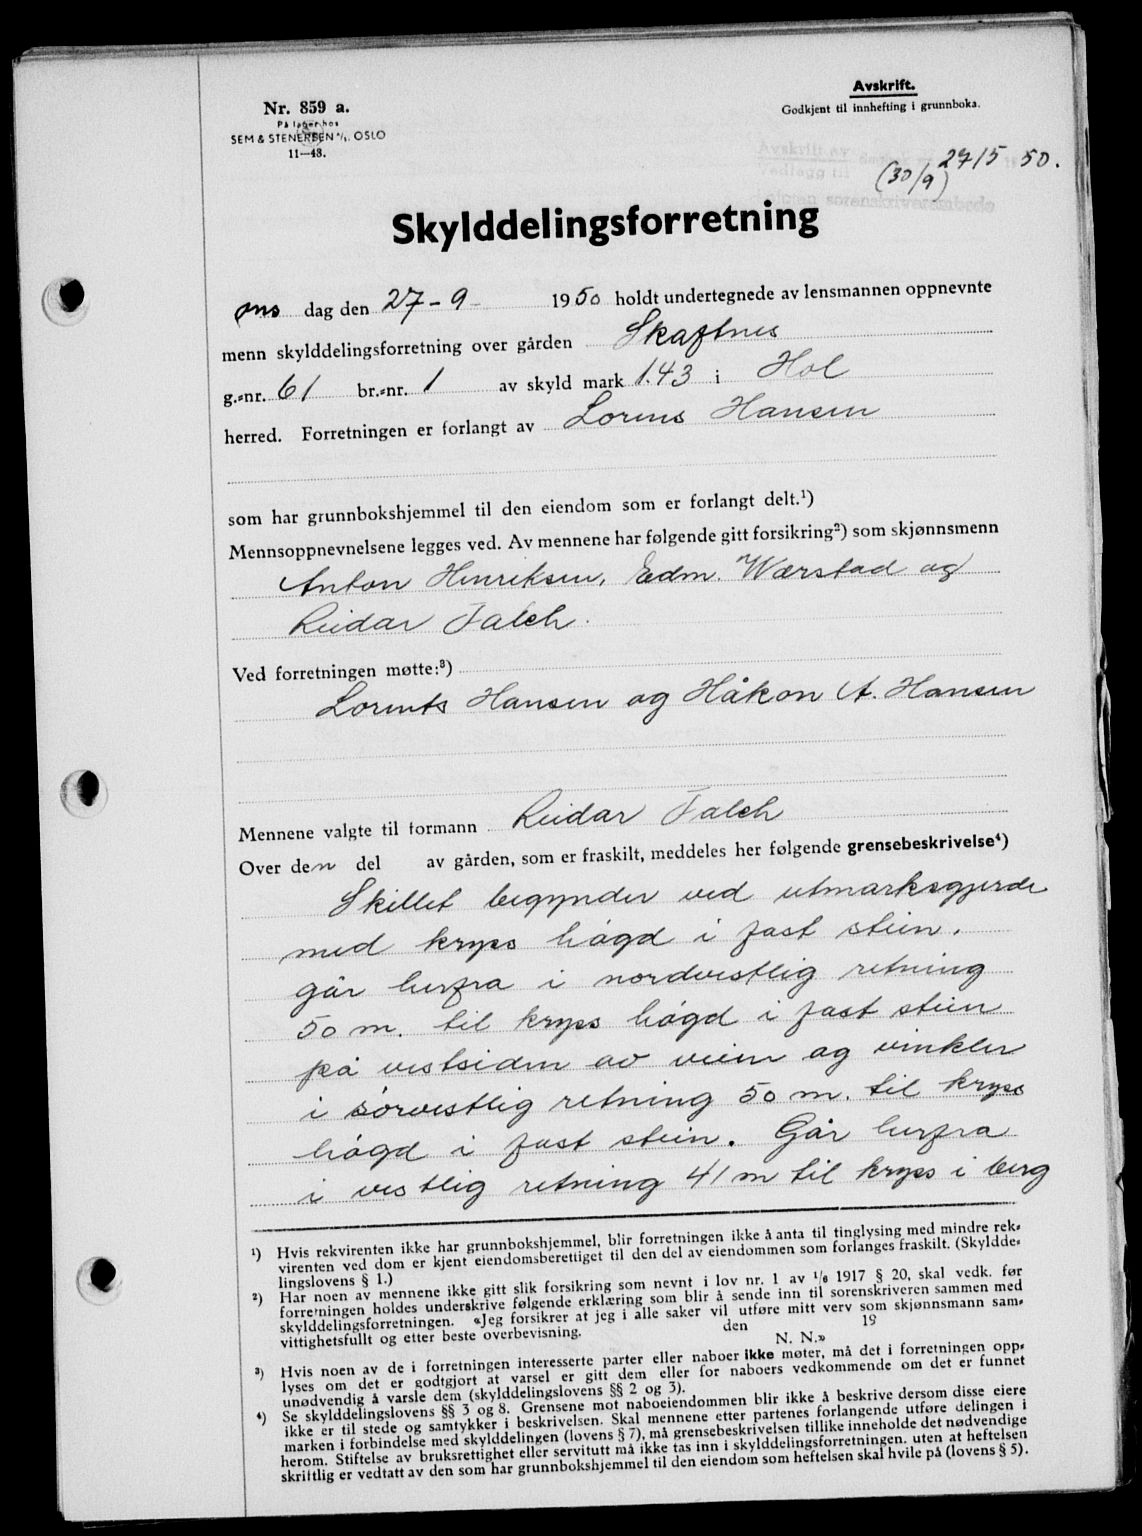 Nr. 859 a.
På lager hos
SEM & STENERSEN A/S, OSLO
11—48.
Avskrift.
Godkjent til innhefting i grunnboka.
2715 50.
(30/9)
Skylddelingsforretning
ons dag den 27-9- 1950 holdt undertegnede av lensmannen oppnevnte
menn skylddelingsforretning over gården Skaftnes
g.-nr. 61 br.-nr. 1 av skyld mark 1.43 i Hol
herred. Forretningen er forlangt av Lorens Hansen
som har grunnbokshjemmel til den eiendom som er forlangt delt.¹)
Mennsoppnevnelsene legges ved. Av mennene har følgende gitt forsikring²) som skjønnsmenn
Anton Henriksen, Edm. Wærstad og
Reidar Falch.
Ved forretningen møtte:³)
Lorents Hansen og Håkon A. Hansen
Mennene valgte til formann Reidar Falch
Over den del av gården, som er fraskilt, meddeles her følgende grensebeskrivelse⁴)
Skillet begynder ved utmarksgjerde
med kryss högd i fast stein.
går herfra i nordvestlig retning
50 m. til kryss högd i fast stein
på vestsiden av veien og vinkler
i sörvestlig retning 50 m. til kryss
högd i fast stein. Går herfra
i vestlig retning 41 m til kryss i berg
¹) Hvis rekvirenten ikke har grunnbokshjemmel, blir forretningen ikke å anta til tinglysing med mindre rek-
virenten ved dom er kjent eiendomsberettiget til den del av eiendommen som forlanges fraskilt. (Skyldde-
lingslovens § 1.)
²) Har noen av mennene ikke gitt slik forsikring som nevnt i lov nr. 1 av 1/6 1917 § 20, skal vedk. før
forretningen holdes underskrive følgende erklæring som blir å sende inn til sorenskriveren sammen med
skylddelingsforretningen. «Jeg forsikrer at jeg i alle saker vil utføre mitt verv som skjønnsmann sam-
vittighetsfullt og etter beste overbevisning. den 19
N. N.»
³) Hvis noen av de i forretningen interesserte parter eller naboer ikke møter, må det i forretningen opp-
lyses om det er godtgjort at varsel er gitt dem eller for naboers vedkommende om det er funnet
unødvendig å varsle dem (skylddelingslovens §§ 2 og 3).
⁴) Se skylddelingslovens §§ 3 og 8. Grensene mot naboeiendommen blir ikke å beskrive dersom disse eiere
ikke er til stede og samtykker i beskrivelsen. Skal mennene etter partenes forlangende utføre delingen i
marken i forbindelse med skylddelingen (lovens § 7), må grensebeskrivelsen tillike inneholde det nødvendige
herom. Stiftelse av bruksrettighet eller servitutt må ikke tas inn i skylddelingsforretningen, uten at heftelsen
skriftlig er vedtatt av den som har grunnbokshjemmel til den eiendom som heftelsen skal hvile på (lovens § 5).